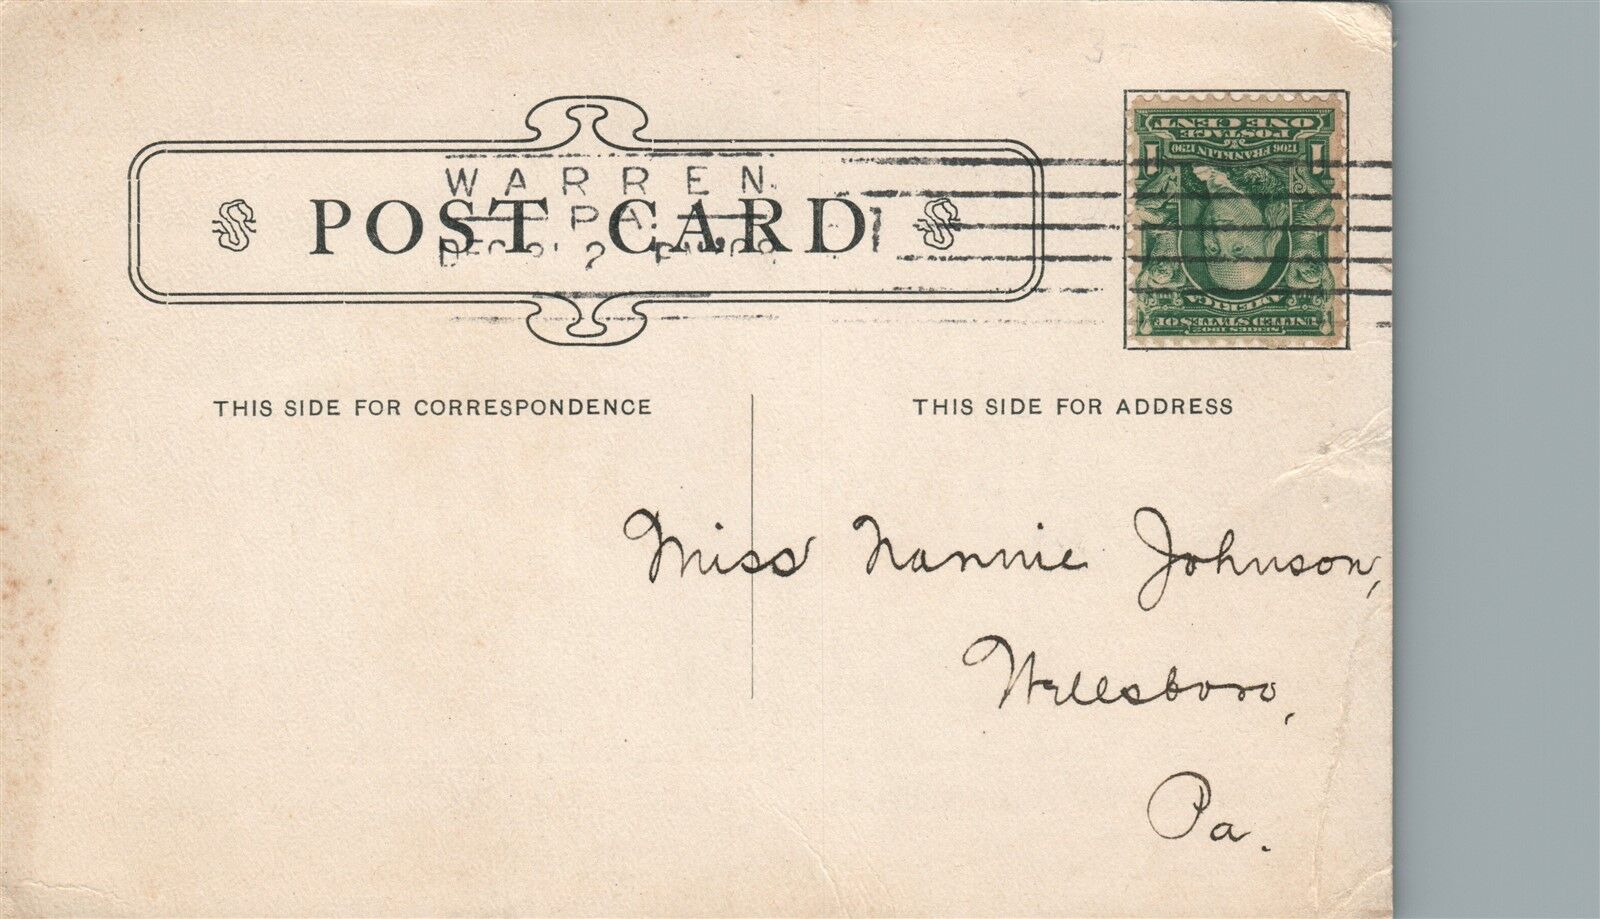 WARREN.
PA.
POST CARD
1
ONE CENT
POSTAGE
1706 FRANKLIN 1790
1 1
AMERICA
UNITED STATES OF
SERIES 1902
THIS SIDE FOR CORRESPONDENCE
THIS SIDE FOR ADDRESS
Miss Nannie Johnson,
Wellsboro,
Pa.